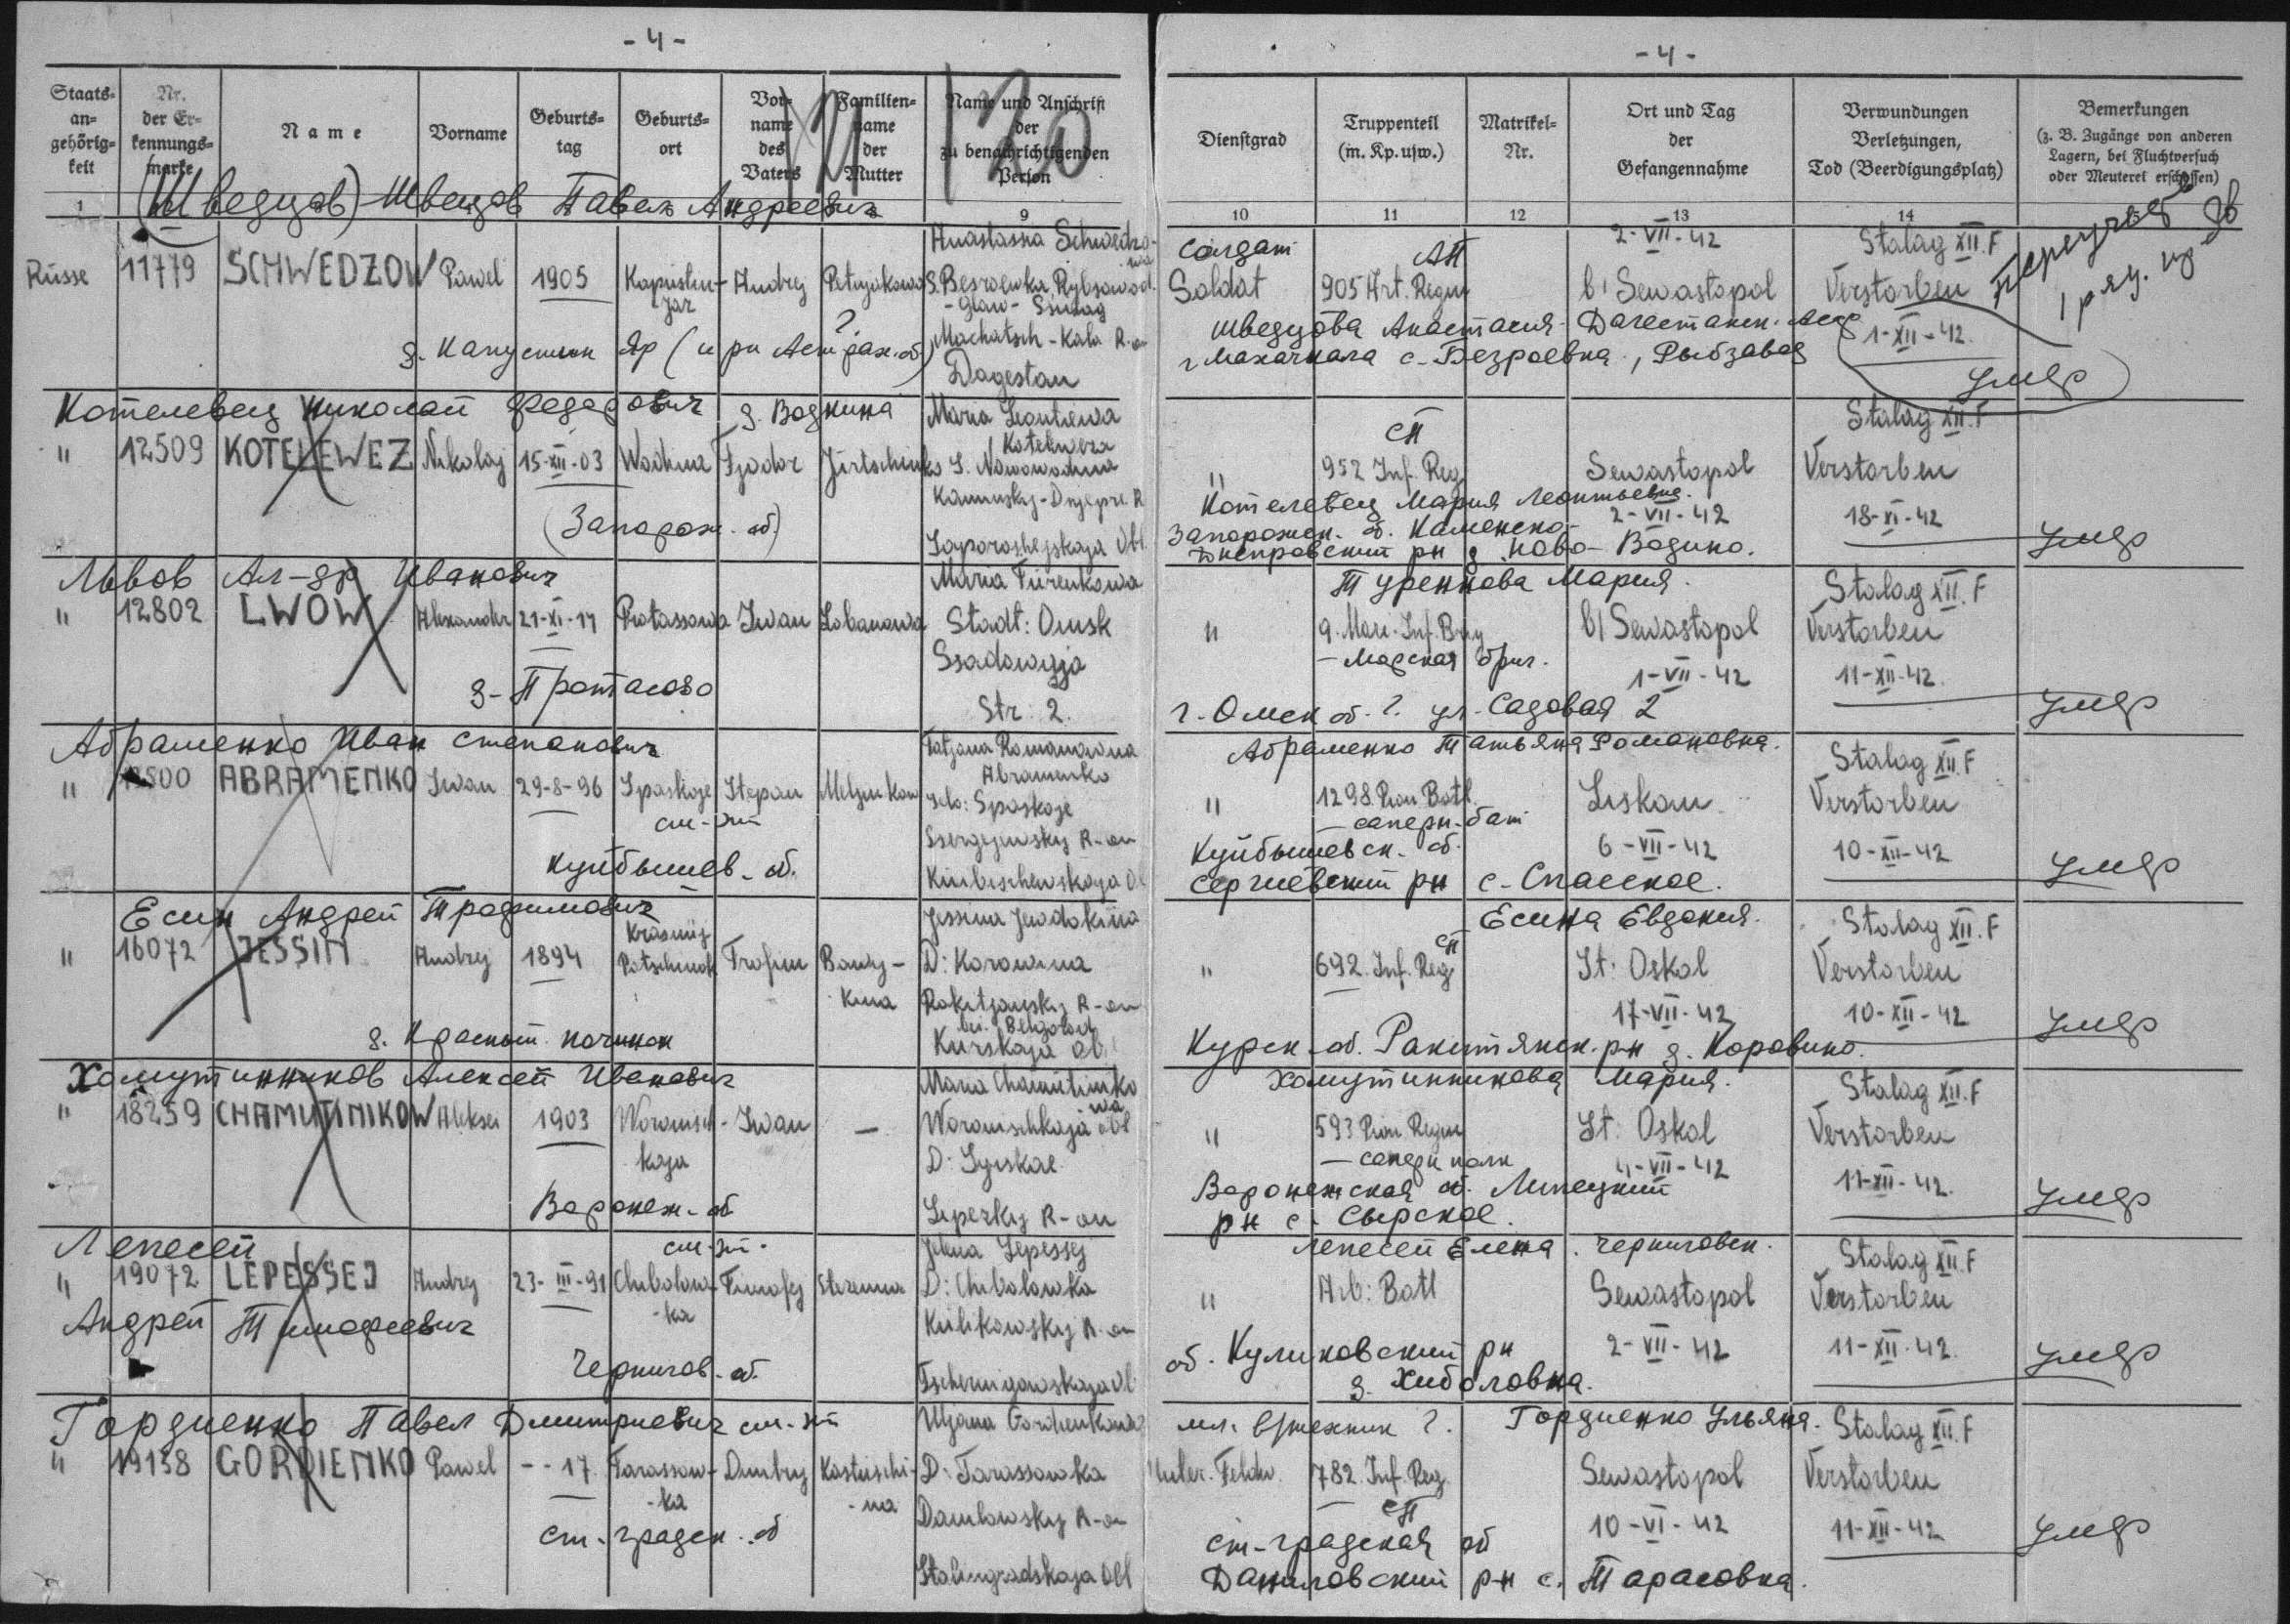 - 4 -
- 4 -
Staats-
an-
gehörig-
keit
Nr.
der Er-
kennungs-
marke
Name
Vorname
Geburts-
tag
Geburts-
ort
Vor-
name
des
Vaters
Familien-
name
der
Mutter
Name und Anschrift
der
zu benachrichtigenden
Person
Dienstgrad
Truppenteil
(m. Kp. usw.)
Matrikel-
Nr.
Ort und Tag
der
Gefangennahme
Verwundungen
Verletzungen,
Tod (Beerdigungsplatz)
Bemerkungen
(z. B. Zugänge von anderen
Lagern, bei Fluchtversuch
oder Meuterei erschossen)
1
9
10
11
12
13
14
(Шведцов) Швецов Павел Андреевич
Russe
11779
SCHWEDZOW
Pawel
1905
Kapustin-
Jar
Andrej
Petrjakowa
?
Anastassia Schwedzo-
wa
S. Besroewka, Rybsawod.
Machatsch-Kala R-on
Dagestan
д. Капустин Яр (и рн Астрах. об)
солдат
Soldat
АП
905 Art. Regm
2-VII-42
b/ Sewastopol
Stalag XII.F
Verstorben
1-XII-42.
умер
Шведцова Анастасия - Дагестанск. Асср
г Махачкала с-Безроевка, Рыбзавод
Котелевец Николай Федорович д. Водкина
"
12509
KOTELEWEZ
Nikolaj
15-XII-03
Wodina
Fjodor
Jurtschenko
Maria Leontiewa
Kotelweza
S. Nowowodina
Kamensky-Dnjepr. R
Saporoshejskaja Obl
(Запорож. об.)
"
СП
952 Inf. Reg
Sewastopol
2-VII-42
Stalag XII.F
Verstorben
18-XI-42
умер
Котелевец Мария Леонтьевна.
Запорожск. об. Каменско-
Днепровский рн д. Ново-Водино.
Львов Ал-др Иванович
"
12802
LWOW
Alexander
21-XI-17
Protassowa
Iwan
Lobanowa
Maria Türenkowa
Stadt: Omsk
Ssadowaja
Str. 2.
д-Протасово
Туренкова Мария.
"
9. Mari-Inf. Brig
- Морская бриг.
b/ Sewastopol
1-VII-42
Stalag XII.F
Verstorben
11-XII-42.
умер
г. Омск об. ?. ул. Садовая 2
Абраменко Иван Степанович
"
ABRAMENKO
Iwan
29-8-96
Spaskoje
Stepan
Melnikow
Tatjana Romanowna
Abramenko
Selo: Spaskoje
Ssergejewsky R-on
Kuibischewskaja Obl
Куйбышев. об.
Абраменко Татьяна Романовна.
"
1298 Pion Batl
- саперн. бат
Liskow
6-VII-42
Stalag XII.F
Verstorben
10-XII-42
умер
Куйбышевск. об.
Сергиевский рн с-Спасское.
Есин Андрей Трофимович
"
16072
JESSIN
Andrej
1894
Krasnuj
Potschinok
Trofim
Jessina Jewdokija
D: Korowina
Rakitjansky R-on
bei. Belgorod
Kurskaja obl
д. Красный починок
Есина Евдокия.
"
СП
692. Inf. Reg
St: Oskol
17-VII-42
Stalag XII.F
Verstorben
10-XII-42
умер
Курск. об. Ракитянск. рн д. Коровино.
Хомутинников Алексей Иванович
"
18259
CHAMUTINIKOW
Aleksei
1903
Woronisch-
kaja
Iwan
—
Maria Chamutiniko
wa
Woronischkaja obl
D: Syrskoe
Lipezky R-on
Воронеж. об
Хомутинникова Мария.
"
593 Pion Regm
- саперн полк
St: Oskol
4-VII-42
Stalag XII.F
Verstorben
11-XII-42.
умер
Воронежская об. Липецкий
рн с. Сырское.
Лепесей
"
19072
LEPESSEJ
Andrej
23-III-91
Chibolow-
-ka
Timofej
Jelena Lepessej
D: Chibolowka
Kulikowsky R-on
Tschernigowskaja Obl
Андрей Тимофеевич
Чернигов. об.
Лепесей Елена. Черниговск.
"
Arb: Batl
Sewastopol
2-VII-42
Stalag XII.F
Verstorben
11-XII-42.
умер
об. Куликовский рн
д. Хиболовка.
Гордиенко Павел Дмитриевич
"
19138
GORDIENKO
Pawel
- - 17
Tarassow-
-ka
Dmitrij
Kostüschi-
-na
Uljana Gordienkowa
D: Tarassowka
Danilowsky R-on
Stalingradskaja Obl
ст-градск. об
мл. в/техник ?.
Гордиенко Ульяна.
Unter. Feldw.
782. Inf. Reg
СП
Sewastopol
10-VI-42
Stalag XII.F
Verstorben
11-XII-42
умер
ст-градская об
Даниловский р-н с. Тарасовка.